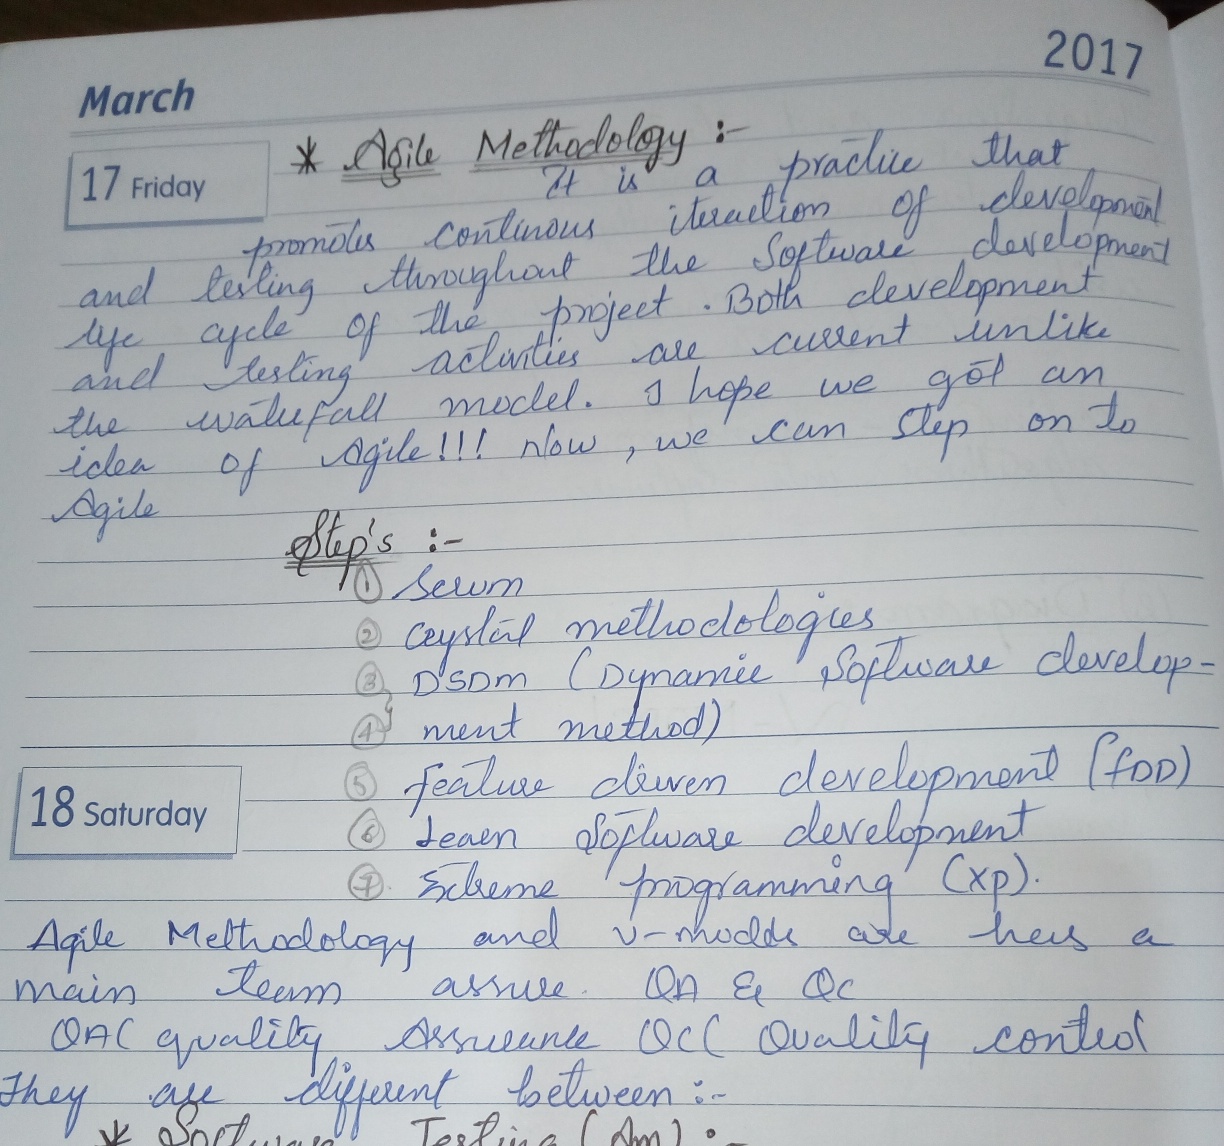 March 2017
17 Friday
* Agile Methodology :-
It is a practice that
promotes continous iteraction of development
and testing throughout the Software development
life cycle of the project. Both development
and testing activities are current unlike
the waterfall model. I hope we got an
idea of Agile!!! Now, we can step on to
Agile
Step's :-
① Scrum
② Crystal methodologies
③ DSDM (Dynamic Software develop-
④ ment method)
⑤ feature driven development (fDD)
18 Saturday
⑥ Learn Software development
⑦ Scheme programming (XP).
Agile Methodology and v-models are hers a
main team assure. QA & QC
QA( quality Assurance QC( Quality control
They are different between :-
* Software Testing (Am) :-